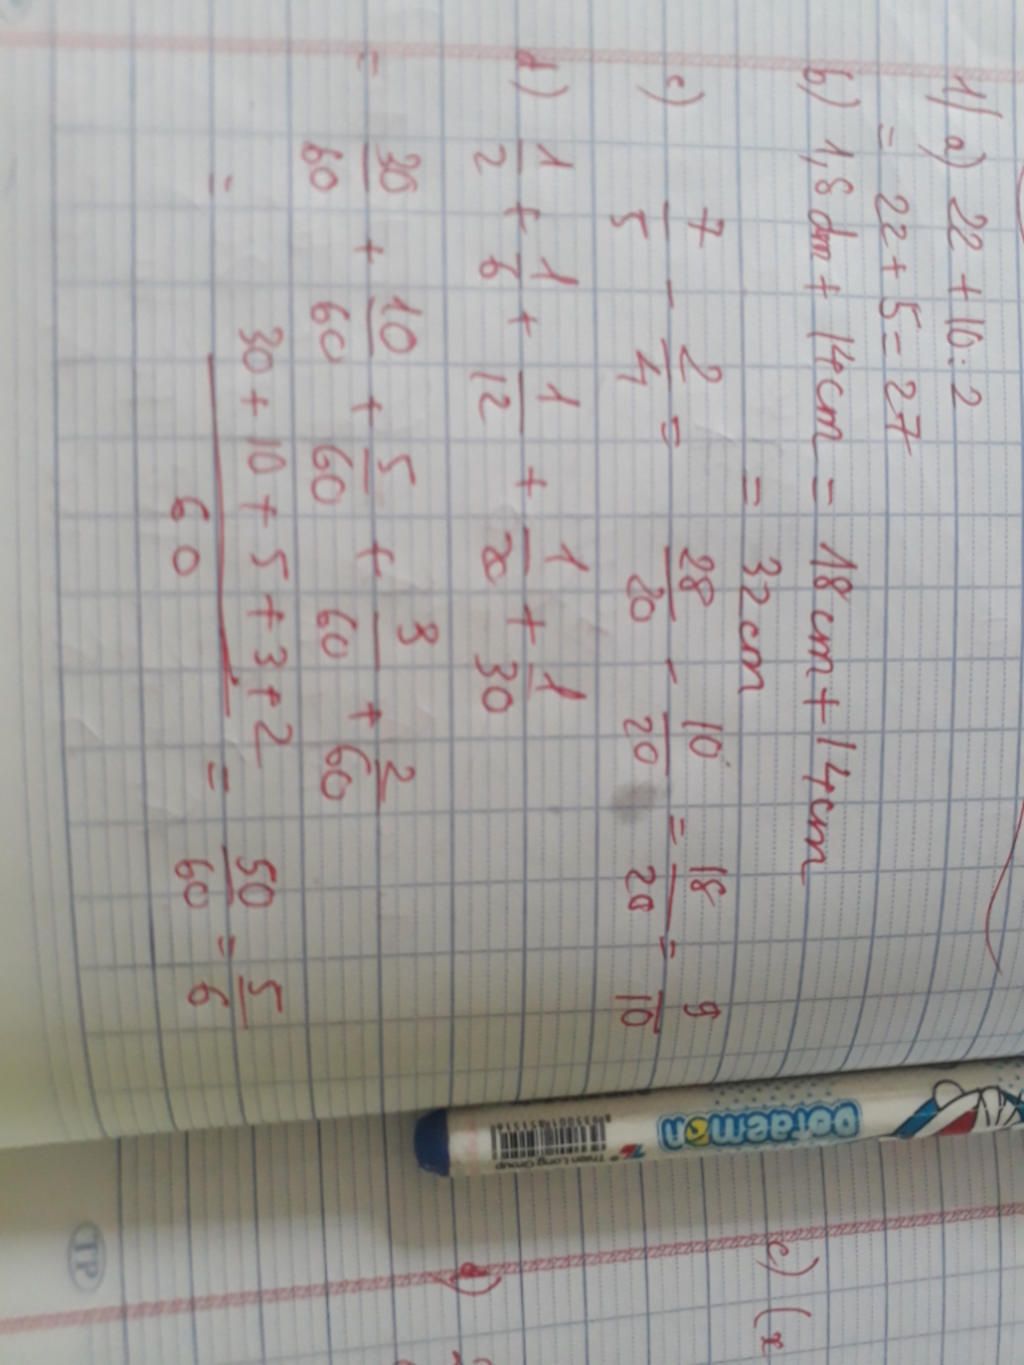 1) a) 22 + 10 : 2
= 22 + 5 = 27
b) 1,8 dm + 14cm = 18cm + 14cm
= 32cm
c) 7/5 - 2/4 = 28/20 - 10/20 = 18/20 = 9/10
d) 1/2 + 1/6 + 1/12 + 1/20 + 1/30
= 30/60 + 10/60 + 5/60 + 3/60 + 2/60
= (30 + 10 + 5 + 3 + 2)/60 = 50/60 = 5/6
Doraemon
Thien Long Group
c) (x
d)
TP